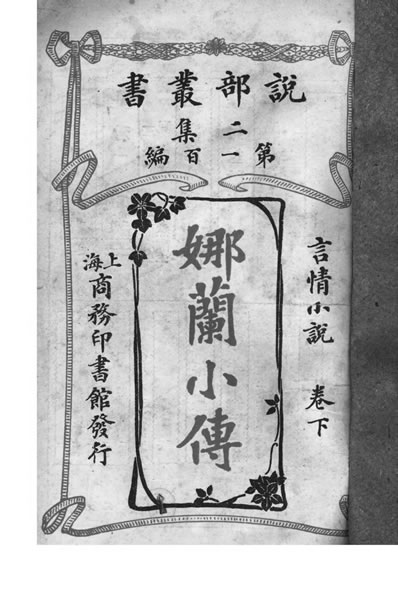 說部叢書
第二集一百編
言情小說 卷下
娜蘭小傳
上海商務印書館發行